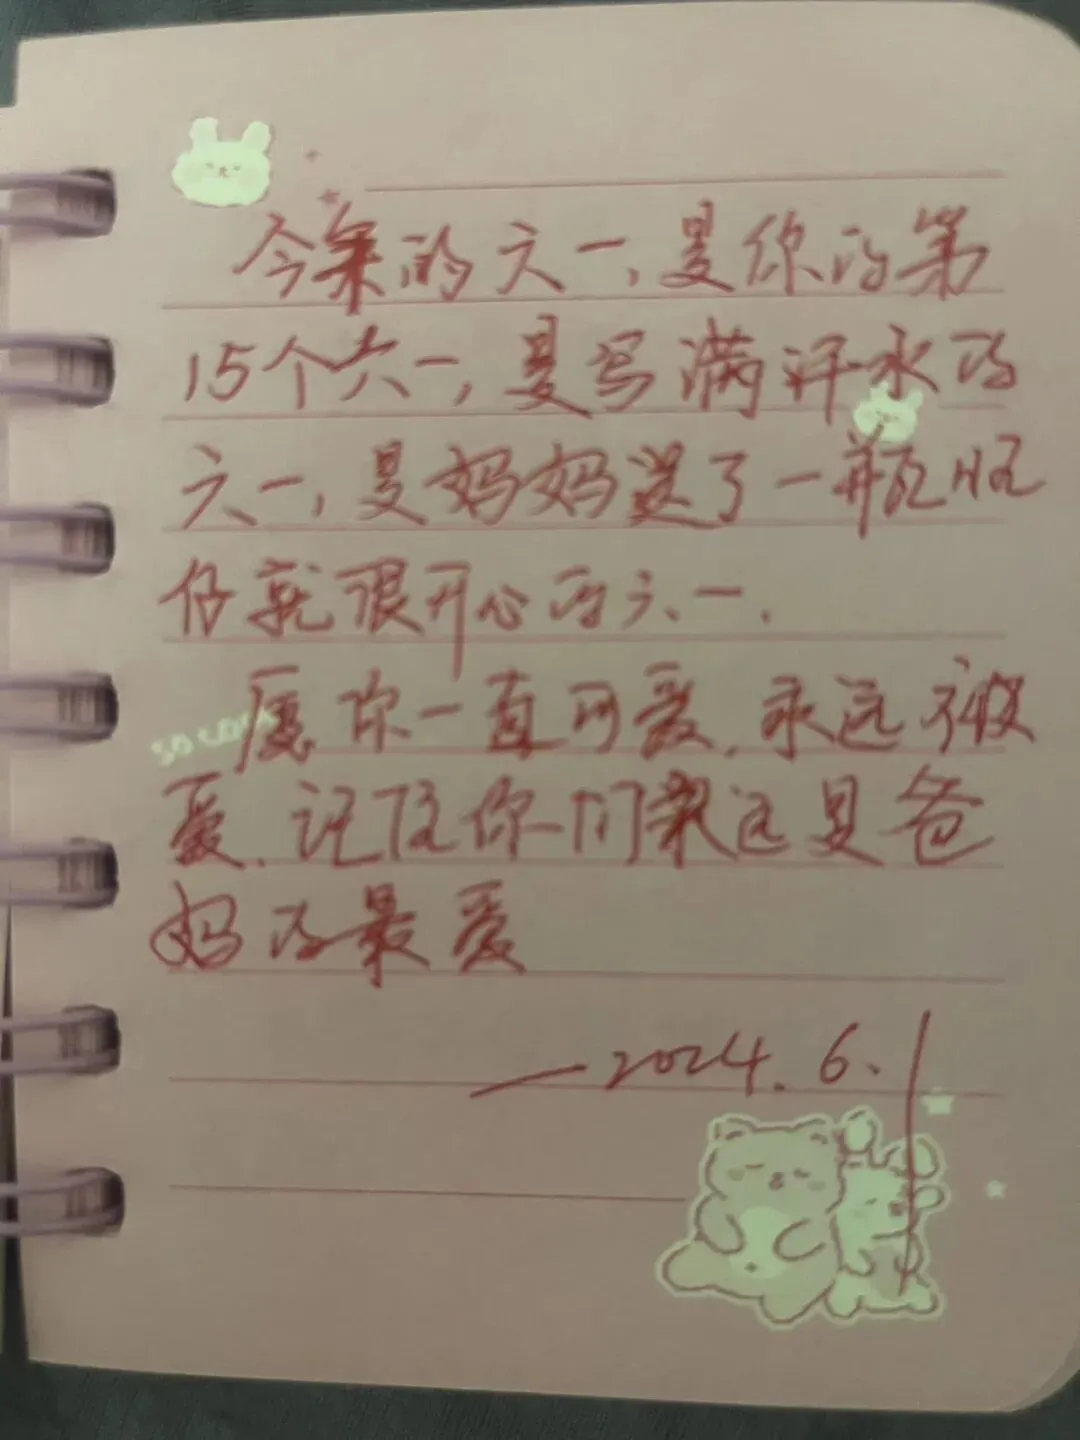 今年的六一,是你的第
15个六一,是写满汗水的
六一,是妈妈送了一瓶旺
仔就很开心的六一.
愿你一直可爱.永远被
爱.记住你们永远是爸
妈的最爱
—2024.6.1